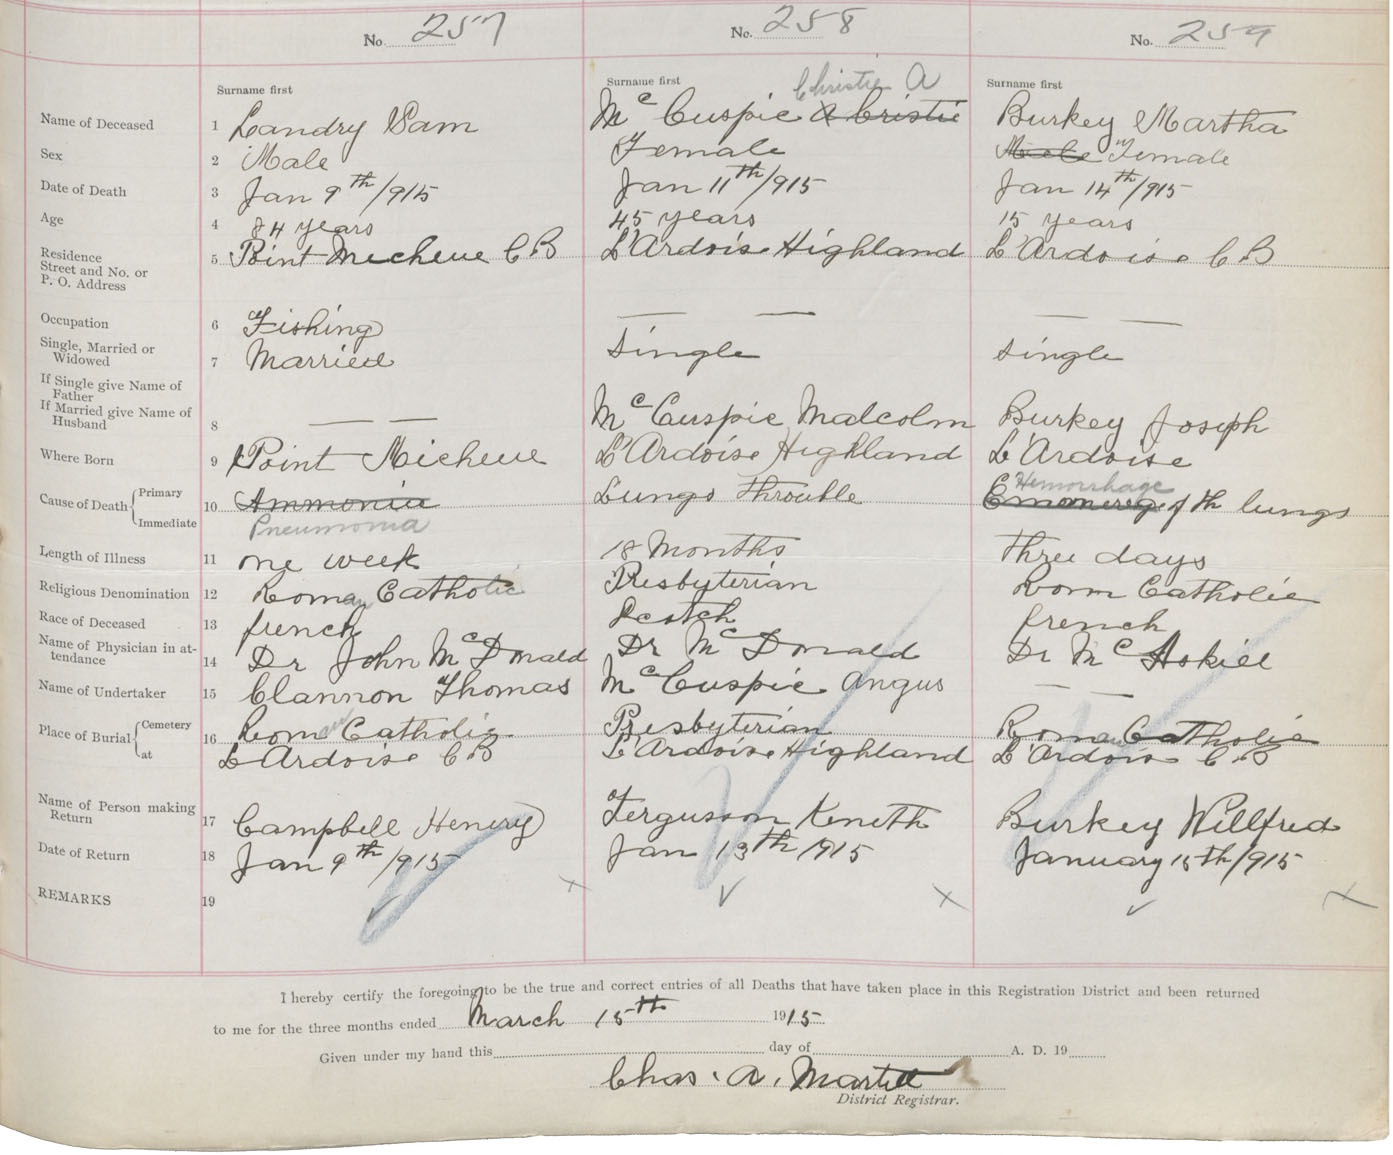 No. 257 No. 258 No. 259
Surname first Surname first Surname first
Christie A
Name of Deceased 1 Landry Sam Mc Cuspic A Cristie Burkey Martha
Sex 2 Male Female Male "Female
Date of Death 3 Jan 9th/915 Jan 11th/915 Jan 14th/915
Age 4 84 years 45 years 15 years
Residence 5 Point Micheue C B L'Ardoise Highland L'Ardoise C B
Street and No. or
P. O. Address
Occupation 6 Fishing — — — —
Single, Married or
Widowed 7 Married Single Single
If Single give Name of
Father
If Married give Name of
Husband 8 — — Mc Cuspic Malcolm Burkey Joseph
Where Born 9 Point Micheue L'Ardoise Highland L'Ardoise
Cause of Death { Primary Immediate 10 Ammonia Lungs Throuble Hemorrhage of th lungs
Pneumonia
Length of Illness 11 one week 18 Months three days
Religious Denomination 12 Roman Catholic Presbyterian Rom Catholic
Race of Deceased 13 french Scotch french
Name of Physician in at-
tendance 14 Dr John McDonald Dr McDonald Dr Mc Askill
Name of Undertaker 15 Clannon Thomas Mc Cuspic Angus — —
Place of Burial { Cemetery 16 Roman Catholic Presbyterian Roman Catholic
at L'Ardoise C B L'Ardoise Highland L'Ardoise C B
Name of Person making
Return 17 Campbell Henery Fergusson Keneth Burkey Willfred
Date of Return 18 Jan 9th/915 Jan 13th 1915 January 15th/915
REMARKS 19
I hereby certify the foregoing to be the true and correct entries of all Deaths that have taken place in this Registration District and been returned
to me for the three months ended March 15th 1915
Given under my hand this day of A. D. 19
Chas. A. Martell
District Registrar.